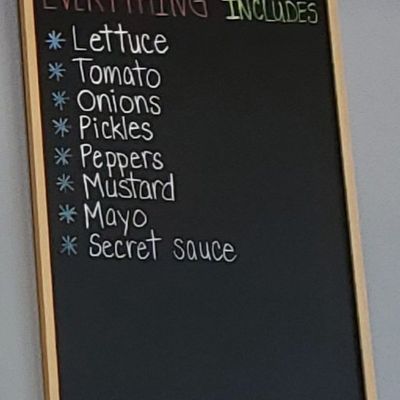 EVERYTHING INCLUDES
* Lettuce
* Tomato
* Onions
* Pickles
* Peppers
* Mustard
* Mayo
* Secret sauce